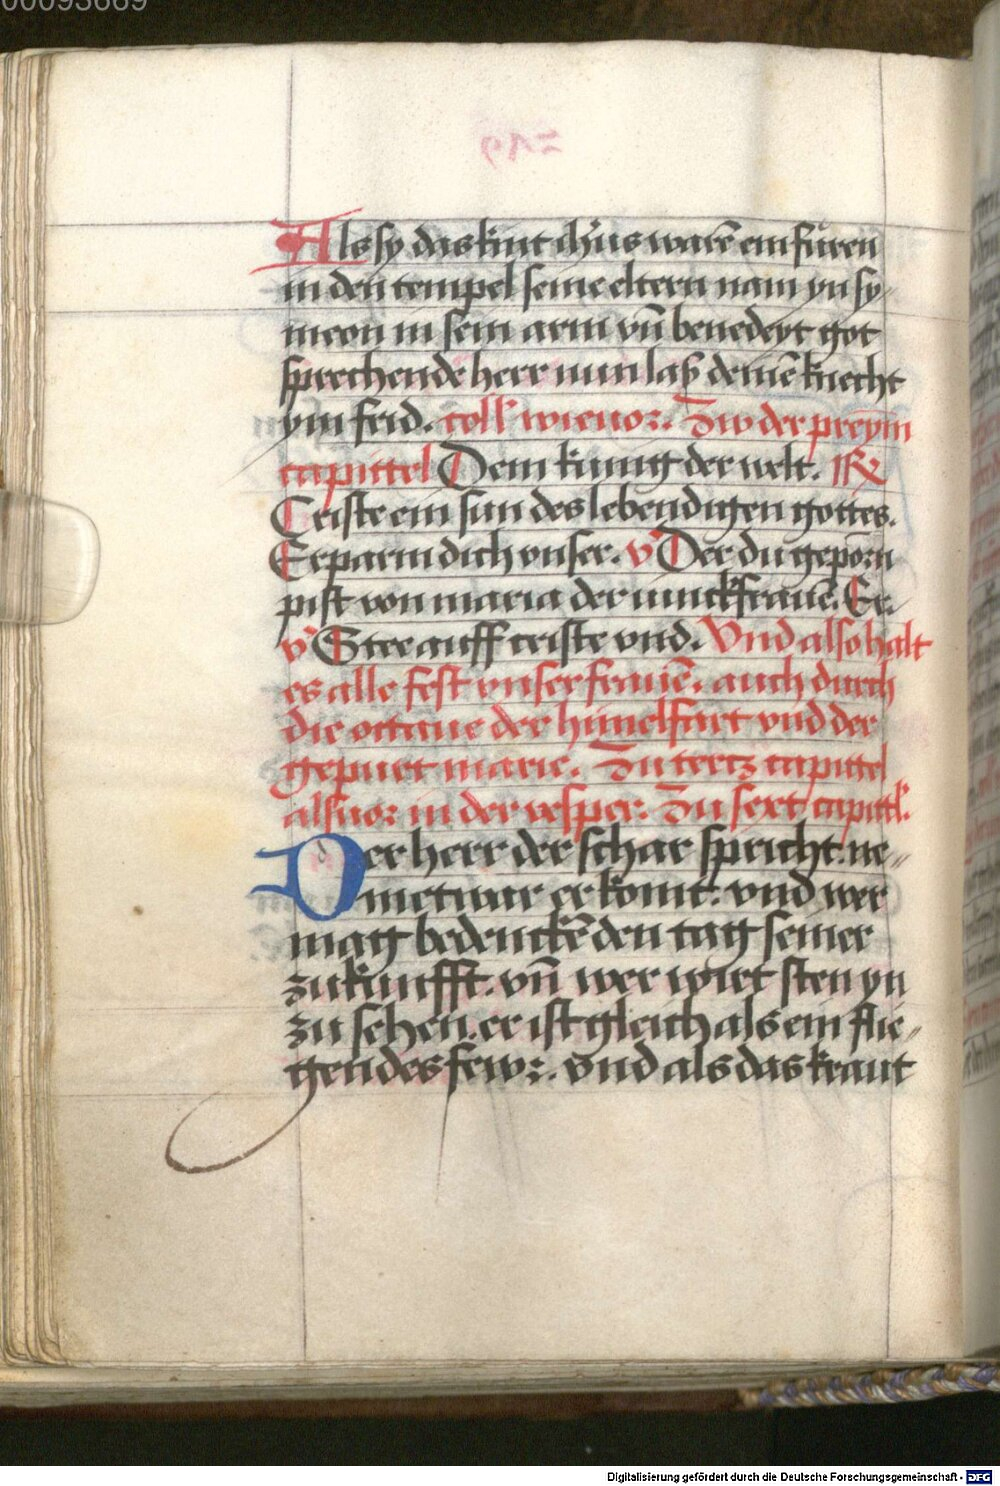 00093669
Als sy das kint ih̄us warē einfüren
in den tempel seine eltern nam yn sy
meon in sein arm vn̄ benedeyt got
sprechende herr nun laß deinē knecht
ym frid. coll' wieuor. Zw der preym
capittel Dem kunig der welt. R
Criste ein sun des lebendigen gottes.
Erparm dich vnser. v Der du geporn
pist von maria der iunckfrauē. Er.
v Stee auff criste vnd. Vnd also halt
es alle fest vnser frauē. auch durch
die octaue der himelfart vnd der
gepurt marie. Zu tertz capittel
als uor in der vesper. Zu sext capittl'.
Der herr der schar spricht. ne-
met war er komt. vnd wer
mag bedenckē den tag seiner
zukunfft. vn̄ wer wirt sten yn
zu sehen. er ist gleich als ein flie-
gendes fewr. vnd als das kraut
Digitalisierung gefördert durch die Deutsche Forschungsgemeinschaft - DFG